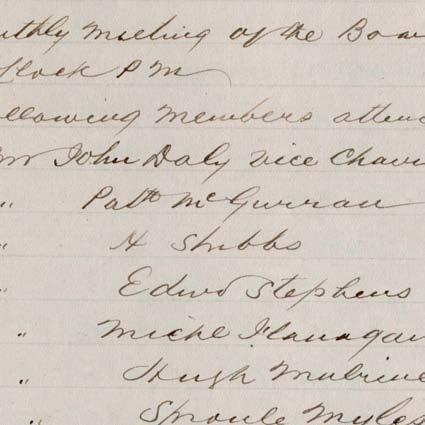 nthly meeting of the Boar
clock P M
ollowing members atten
Mr John Daly Vice Chair
" Patk McGurran
" H Stubbs
" Edwd Stephens
" Michl Flanagan
" Hugh
" Sproule Myles